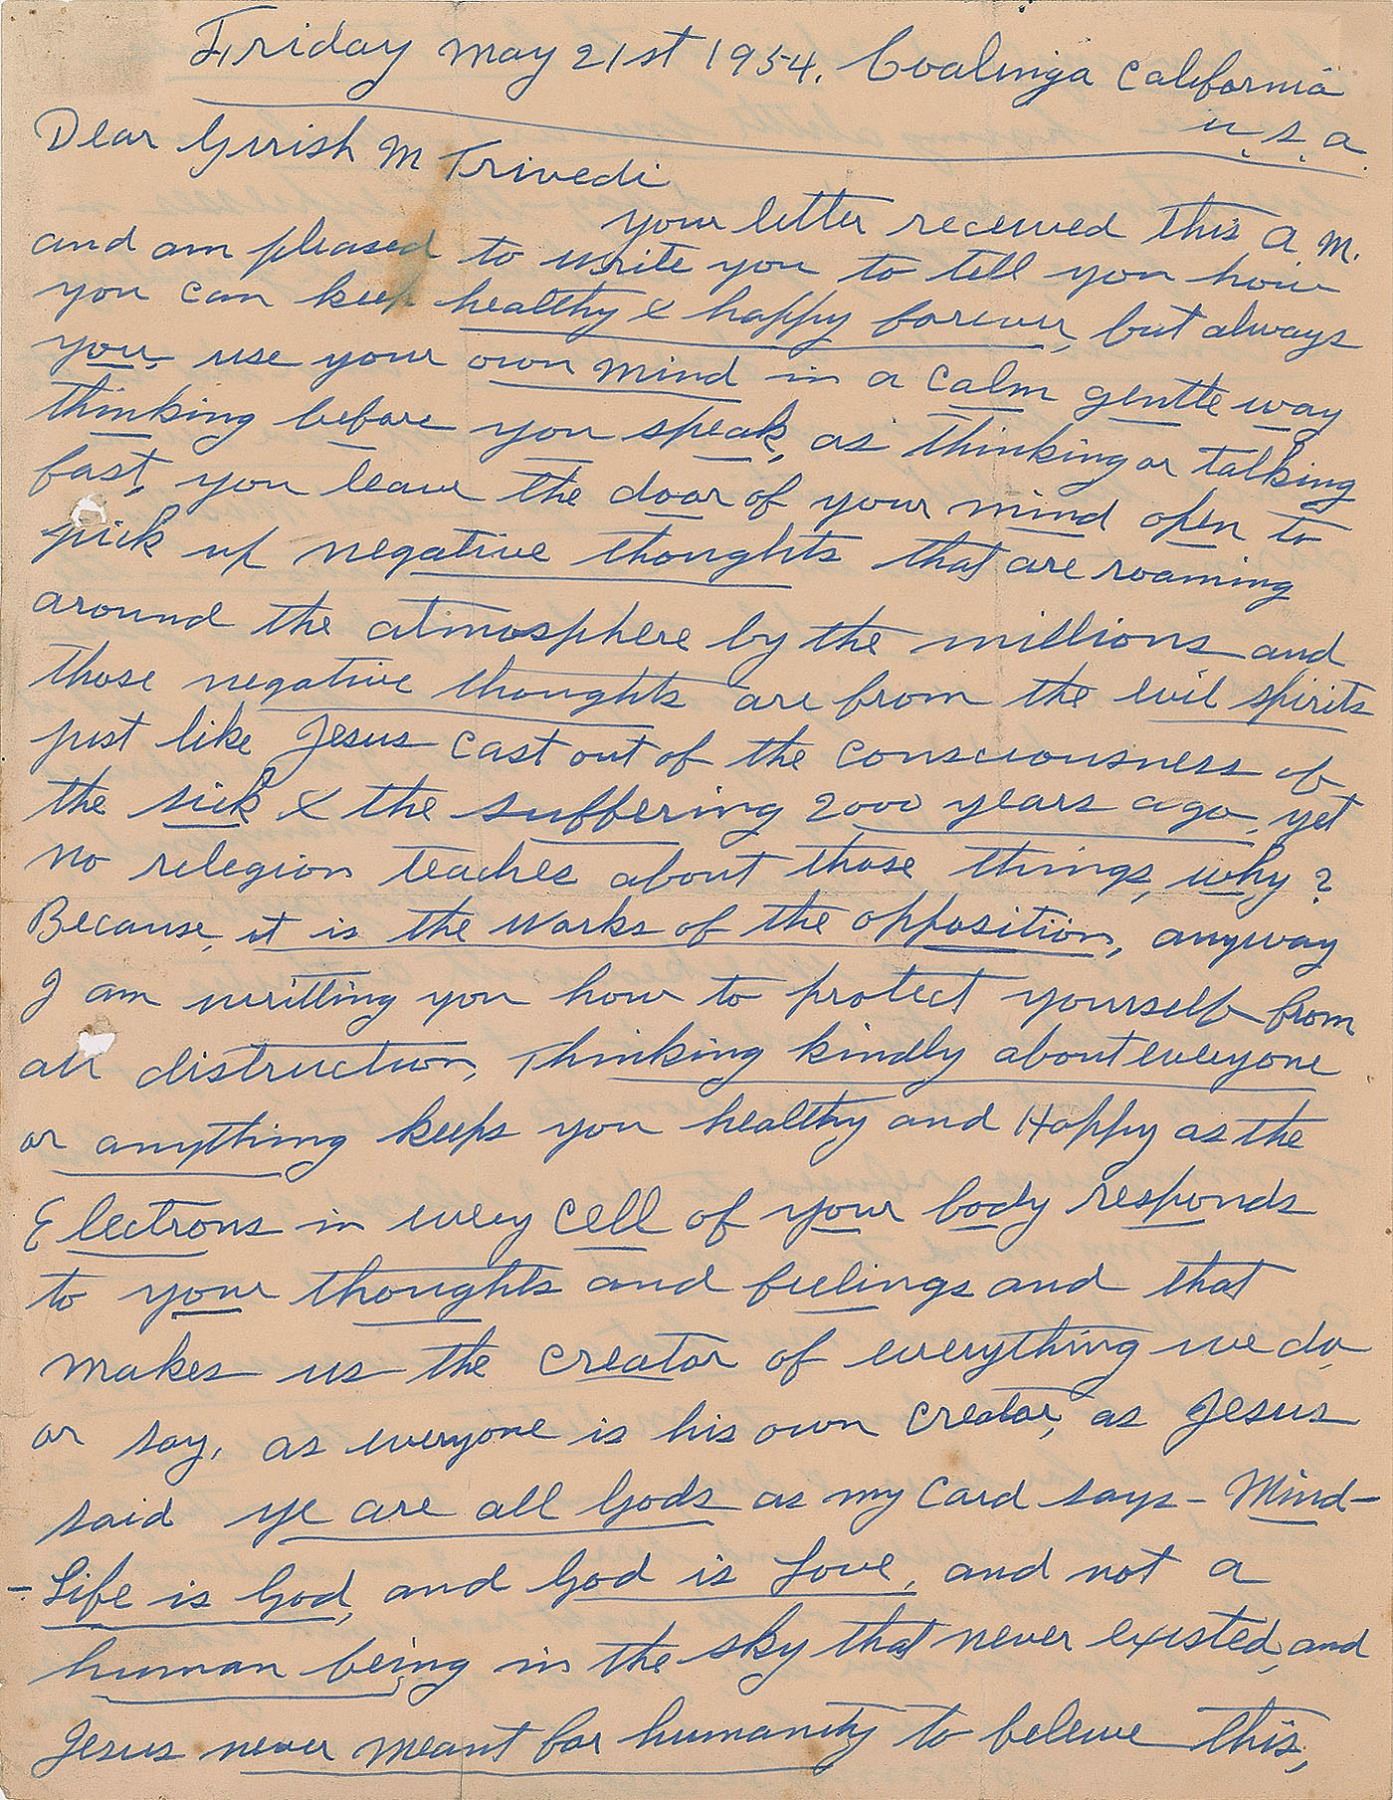 Friday May 21st 1954. Coalinga California
U.S.A.
Dear Girish M Trivedi
your letter received this A M.
and am pleased to write you to tell you how
you can keep healthy & happy forever, but always
you, use your own mind in a calm gentle way
thinking before you speak, as thinking or talking
fast, you leave the door of your mind open to
pick up negative thoughts that are roaming
around the atmosphere by the millions and
those negative thoughts are from the evil spirits
just like Jesus cast out of the consciousness of
the sick & the suffering 2000 years ago, yet
no relegion teaches about those things, why?
Because, it is the works of the oppositiion, anyway
I am writting you how to protect yourself from
all distruction, Thinking kindly about everyone
or anything keeps you healthy and Happy as the
Electrons in every cell of your body responds
to your thoughts and feelings and that
makes us the creator of everything we do
or say, as everyone is his own creator, as Jesus
said ye are all Gods as my Card says - Mind -
- Life is God, and God is Love, and not a
human being in the sky that never existed, and
Jesus never meant for humanity to beleive this,